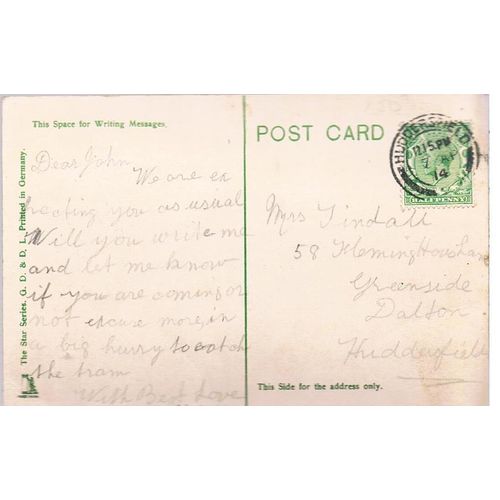 This Space for Writing Messages.
Dear John
We are ex
pecting you as usual
Will you write me
and let me know
if you are coming or
not excuse more in
a big hurry to catch
the tram
With Best Love
The Star Series. G. D. & D. L. Printed in Germany.
POST CARD
HUDDERSFIELD
12.15 PM
14
Mrs Tindall
58 Fleming House
Greenside
Dalton
Huddersfield
This Side for the address only.